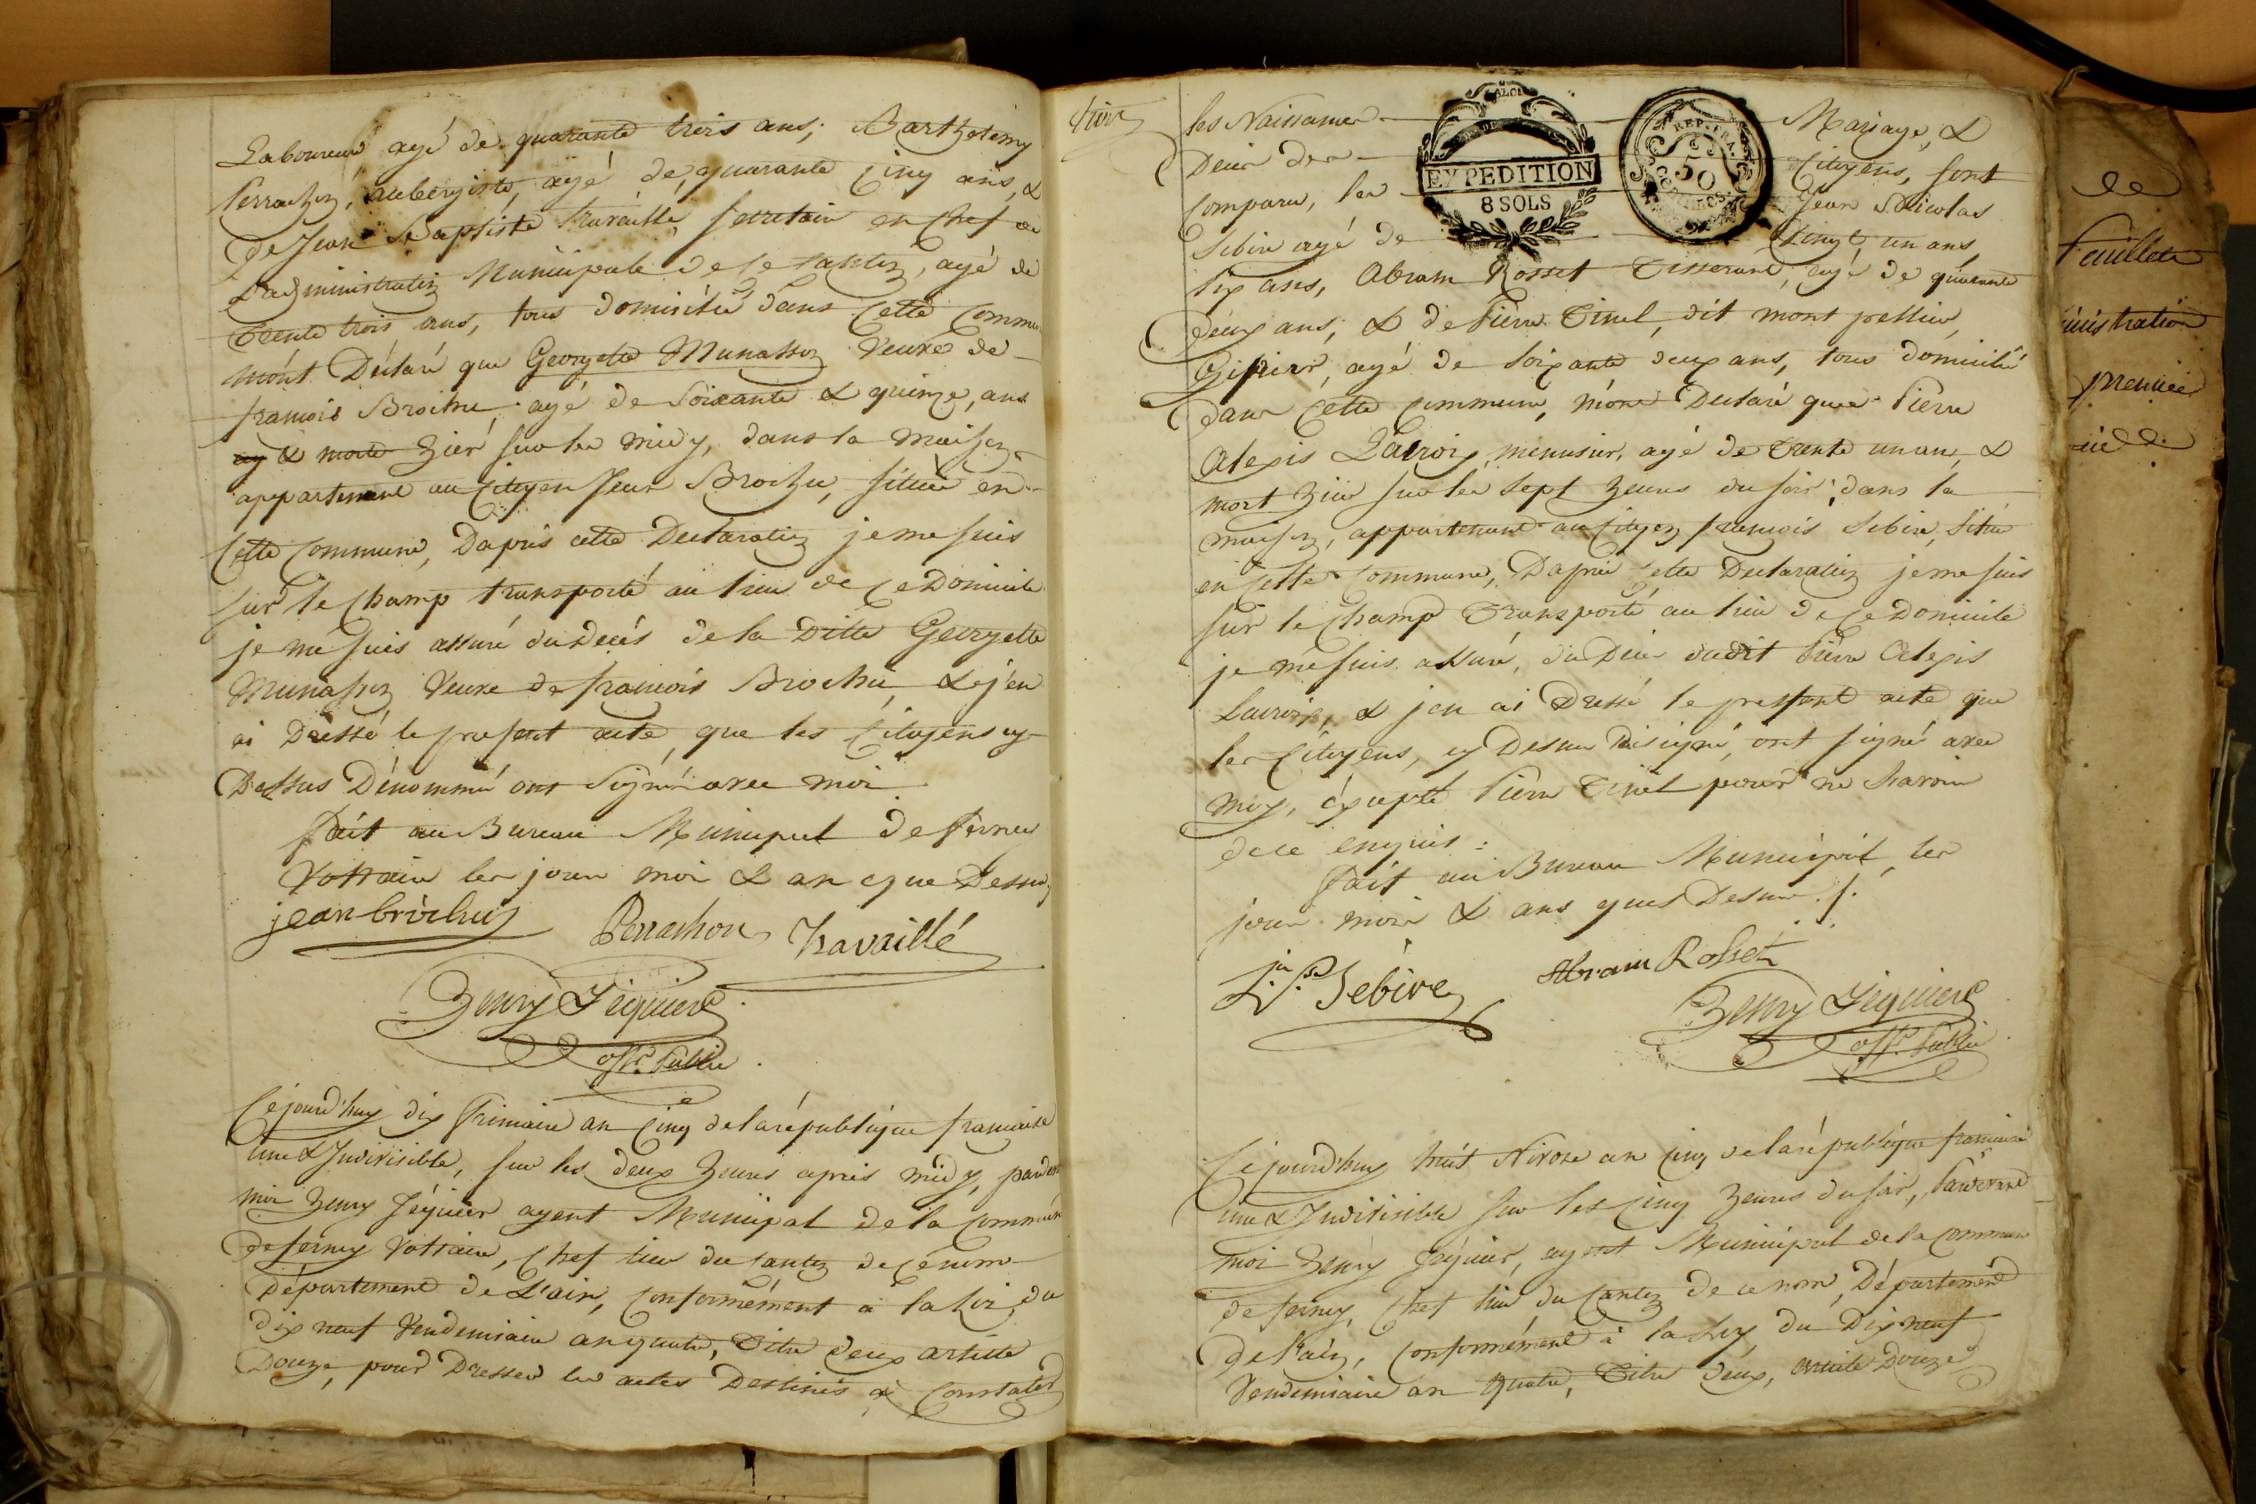 Laboureur agé de quarante trois ans; Barthelemy
Perrachon, aubergiste, agé de quarante Cinq ans, &
De Jean Baptiste Travaillé, secretaire en Chef de
L'administration Municipale de ce Canton, agé de
trente trois ans, tous domicilié dans Cette Commune
m'ont Déclaré que Georgette Munasson Veuve de
francois Brochu agé de Soixante & quinze, ans
& morte hier sur les midy, dans la maison
appartenant au Citoyen Jean Brochu, situèe en
Cette Commune, Dapris cette Declaration je me suis
sur le Champ transporté au lieu de Ce Domicile
je me suis assuré du Decès de la Ditte Georgette
Munasson Veuve de francois Brochu, & j'en
ai Dressé le present acte, que les Citoyens cy
Dessus Dénommé ont Signé avec moi
fait au Bureau Municipal De ferney
Voltaire les jour moi & an que Dessus
jean brochu Perrachon Travaillé
Henry Jéquier
off. Public
Cejourd'huy dix frimaire an Cinq de la république francaise
une & Indivisible, sur les deux heures apris midy, pardevt
moi henry Jéquier agent Municipal de la Commune
de ferney Voltaire, Chef lieu du Canton de Cé nom
Département de L'ain, Conformément a la Loi, du
dix neuf Vendemiaire an quatre, Titre deux article
Douze, pour Dresser les actes Destinés à Constater
les Naissances Mariage, &
Décis des Citoyens, sont
Comparu, les Jean Nicolas
Sebire agé de Vingt un ans,
EXPEDITION
8 SOLS
REP. FRA.
50
dix ans, Abram Rosset Tisserant, agé de quarente
deux ans, & de Pierre Tinel, dit mont pellier,
Gipier, agé de soixante deux ans, tous domicilié
dans Cette Commune, mont Déclaré que Pierre
Alexis Lacroix, menusier, agé de Trente un ans, &
mort hier sur les sept heures du soir; dans la
maison, appartenant au Citoyen francois Sebire, Située
en Cette Commune, Dapris Cette Declaration je me suis
sur le Champ Transporté au lieu de Ce Domicile
je me suis assuré, du Décis dudit Pierre Alexis
Lacroix, & j'en ai Dressé le present acte que
les Citoyens, cy Dessus Designé, ont signé avec
moy, éxcepté Pierre Tinel pour ne savoir
de ce enquis:
fait au Bureau Municipal, les
jour mois & ans ques Dessus
Sebire Abram Rosset
Henry Jéquier
off. Public
Cejourd'huy huit Nivose an Cinq de la république francaise
une & Indivisible sur les Cinq heures du soir, Pardevant
moi henry Jéquier, agent Municipal de la Commune
de ferney, Chef lieu du Canton de ce nom, Département
de l'ain, Conformément à la Loy du Dix neuf
Vendemiaire an Quatre, Titre deux, article Douze
de
feuillets
ministration
premier